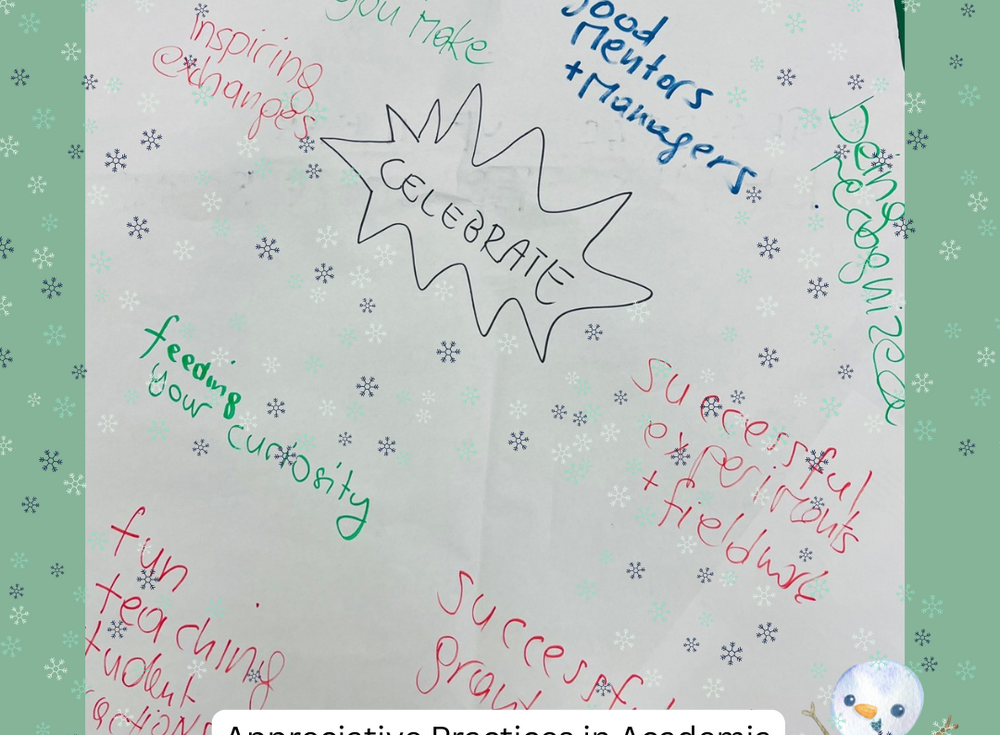 you make
Inspiring
exchanges
Good
Mentors
+Managers
Being
recognized
CELEBRATE
feeding
your curiosity
successful
experiments
+ fieldwork
fun
teaching
student
actions
successful
grant
Appreciative Practices in Academic